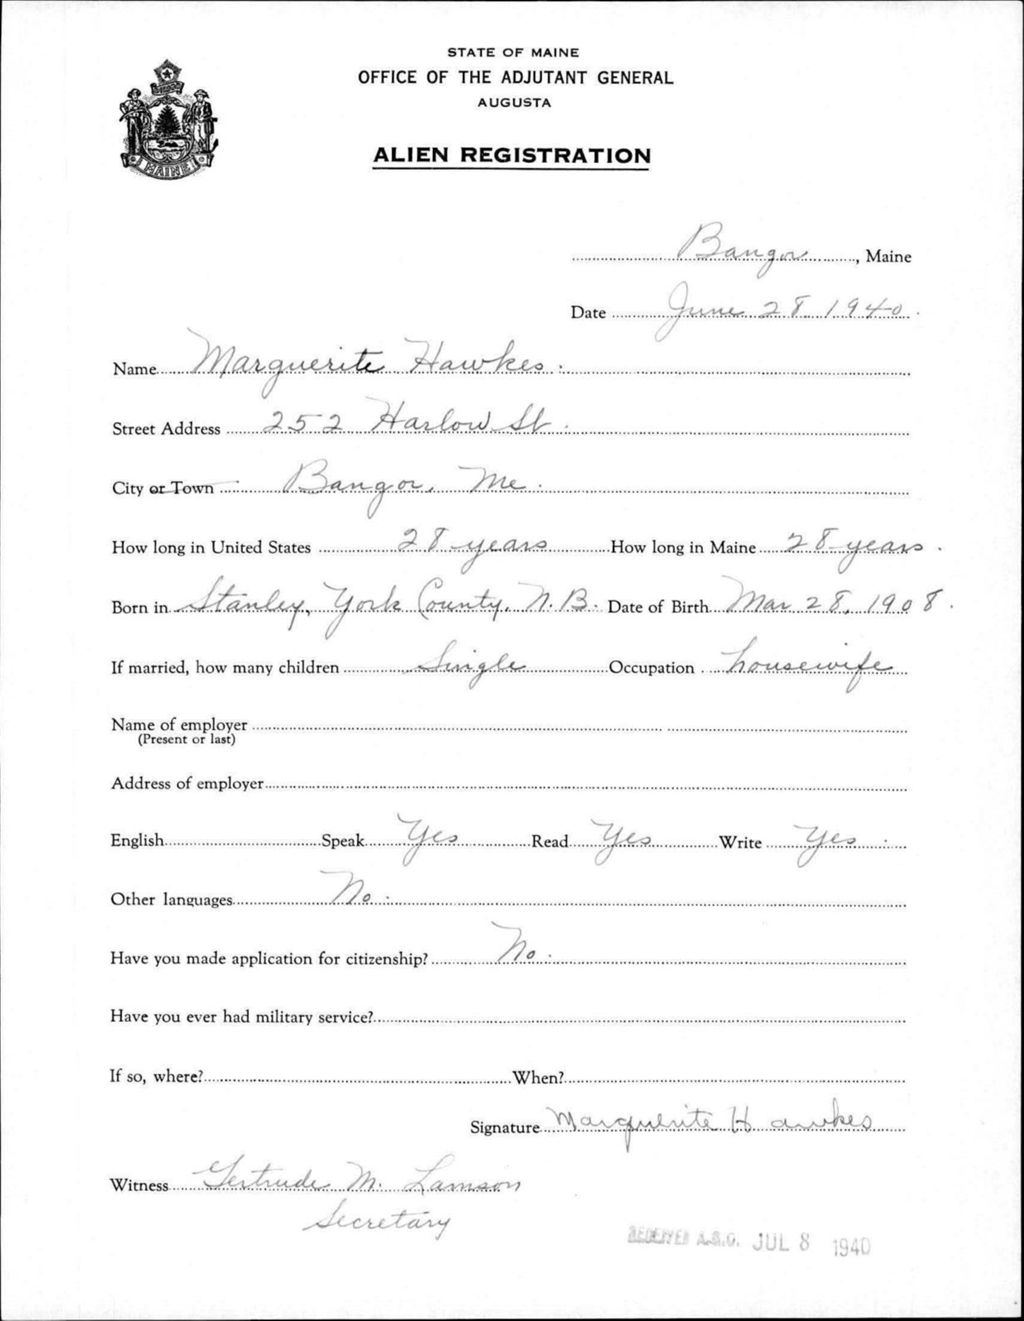 STATE OF MAINE
OFFICE OF THE ADJUTANT GENERAL
AUGUSTA
ALIEN REGISTRATION
MAINE
Bangor, Maine
Date June 28 1940
Name Marguerite Hawkes.
Street Address 252 Harlow St.
City or Town Bangor, Me.
How long in United States 28 years How long in Maine 28 years.
Born in Stanley, York County, N.B. Date of Birth Mar 28, 1908.
If married, how many children Single Occupation housewife
Name of employer
(Present or last)
Address of employer
English Speak Yes Read Yes Write Yes.
Other languages No.
Have you made application for citizenship? No.
Have you ever had military service?
If so, where? When?
Signature Marguerite Hawkes
Witness Gertrude M. Lamson
Secretary
RECEIVED A.G.O. JUL 8 1940